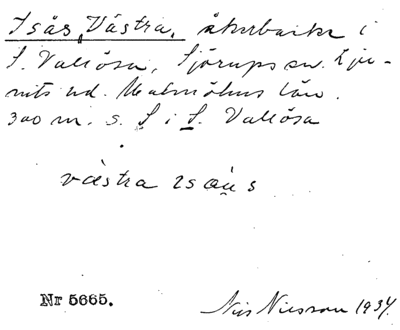 Isås, Västra, åkerbacke i
S. Vallösa, Sjörups sn. Lju-
nits hd. Malmöhus län.
300 m. s. S i S. Vallösa
västra isås
Nr 5665.
Nils Nilsson 1934.